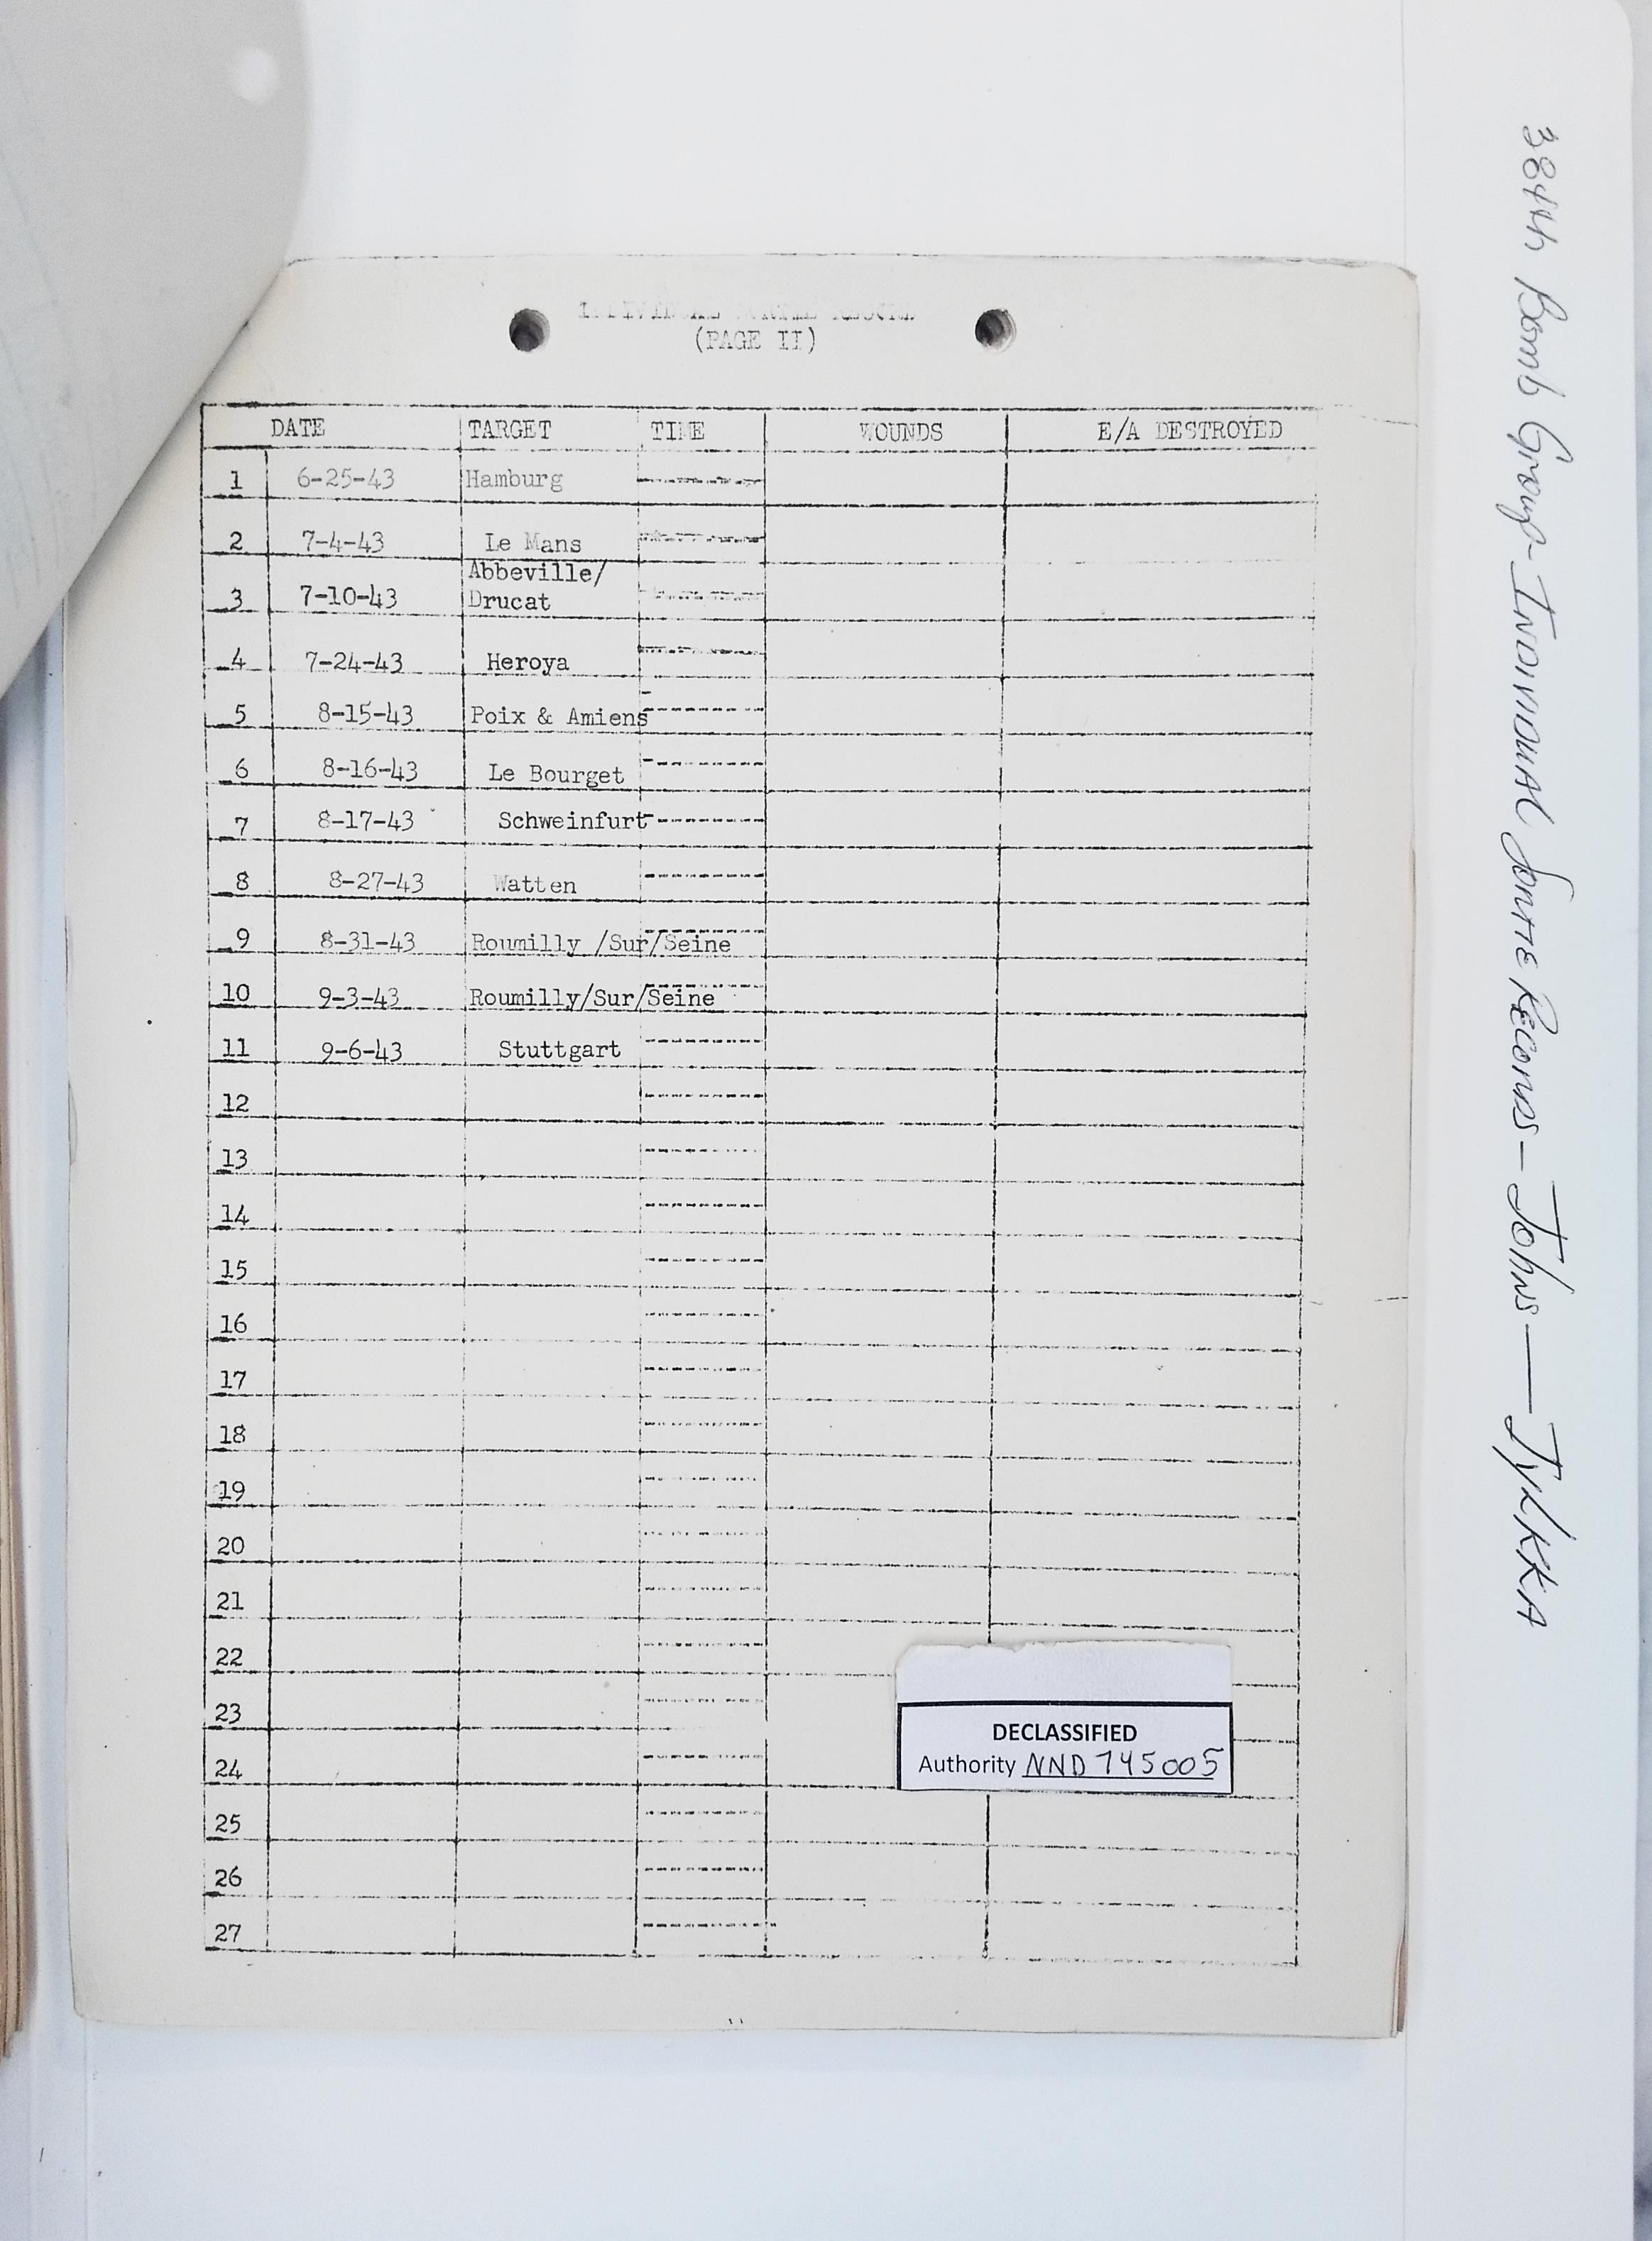 (PAGE II)
DATE TARGET TIME WOUNDS E/A DESTROYED
1 6-25-43 Hamburg
2 7-4-43 Le Mans
3 7-10-43 Abbeville/
Drucat
4 7-24-43 Heroya
5 8-15-43 Poix & Amiens
6 8-16-43 Le Bourget
7 8-17-43 Schweinfurt
8 8-27-43 Watten
9 8-31-43 Roumilly /Sur/Seine
10 9-3-43 Roumilly/Sur/Seine
11 9-6-43 Stuttgart
12
13
14
15
16
17
18
19
20
21
22
23
24
25
26
27
DECLASSIFIED
Authority NND 745005
384th Bomb Group - INDIVIDUAL Sortie Records - Johns — Tylkka